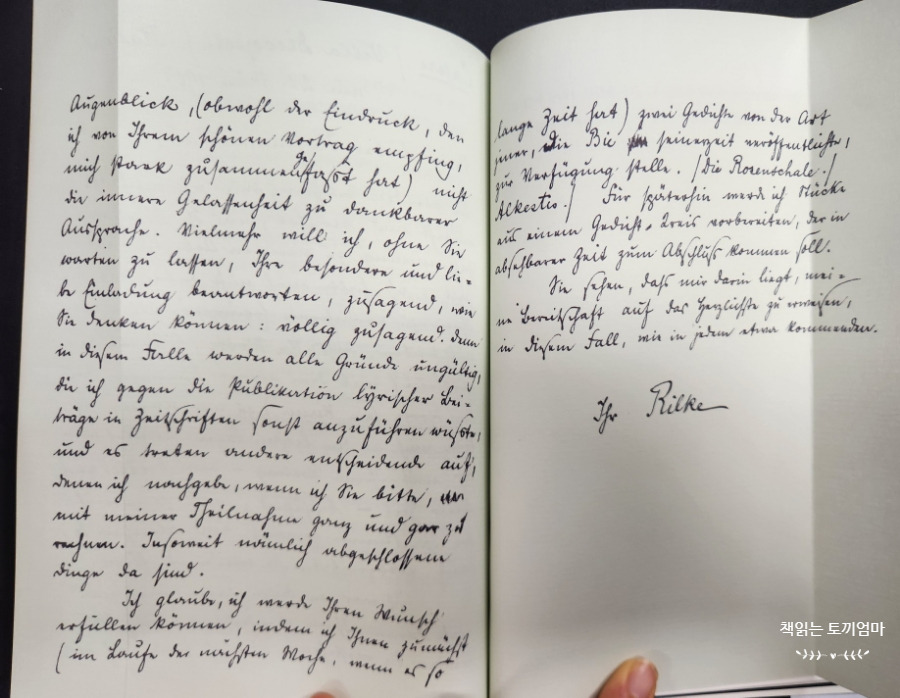 Augenblick, (obwohl der Eindruck, den
ich von Ihrem schönen Vortrag empfing,
mich stark zusammengefasst hat) nicht
die innere Gelassenheit zu dankbarer
Aussprache. Vielmehr will ich, ohne Sie
warten zu lassen, Ihre besondere und lie-
be Einladung beantworten, zusagend, wie
Sie denken können: völlig zusagend. denn
in diesem Falle werden alle Gründe ungültig,
die ich gegen die Publikation lyrischer Bei-
träge in Zeitschriften sonst anzuführen wüsste,
und es treten andere entscheidende auf,
denen ich nachgebe, wenn ich Sie bitte,
mit meiner Theilnahme ganz und gar zu
rechnen. Insoweit nämlich abgeschlossene
Dinge da sind.
Ich glaube, ich werde Ihren Wunsch
erfüllen können, indem ich Ihnen zunächst
(im Laufe der nächsten Woche, wenn es so
lange Zeit hat) zwei Gedichte von der Art
jener, die Sie seinerzeit veröffentlichten,
zur Verfügung stelle. / Die Rosenschale. /
Alkestis. / Für späterhin werd ich Stücke
aus einem Gedicht-Kreis vorbereiten, der in
absehbarer Zeit zum Abschluss kommen soll.
Sie sehen, dass mir daran liegt, mei-
ne Bereitschaft auf das Herzlichste zu erweisen,
in diesem Fall, wie in jedem etwa kommenden.
Ihr Rilke
책읽는 토끼엄마